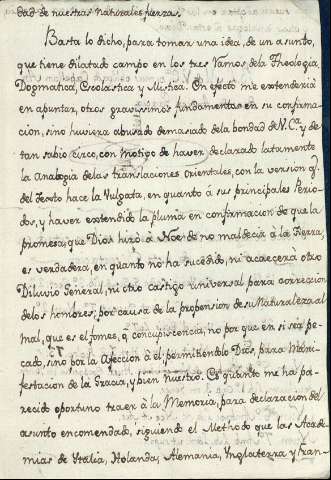 dad de nuestras naturales fuerzas.
Basta lo dicho, para tomar una idea, de un asunto,
que tiene dilatado campo en los tres Ramos dela Theologia,
Dogmatica, Escolastica y Mistica. En efecto me extenderia
en apuntar, otros gravissimos fundamentos en su confirma-
cion, sino huviera abusado demasiado dela bondad de V. Ca. y de
tan sabio circo, con motivo de haver declarado latamente
la Analogia delas translaciones orientales, con la version q.
del Texto hace la Vulgata, en quanto à sus principales Perio-
dos, y haver extendido la pluma en confirmacion de que la
promesa, que Dios hizo à Noè de no maldecir à la Tierra,
es verdadera, en quanto no ha sucedido, ni acaecerà otro
Diluvio General, ni otro castigo universal para correccion
delos hombres; por causa de la propension de su Naturaleza al
mal, que es el fomes, ò concupiscencia, no por que en si sea pe-
cado, sino por la Afeccion à él: permitiendolo Dios para Mani-
festacion de la Gracia, y bien nuestro. Es quanto me ha pa-
recido oportuno traer à la Memoria, para declaracion del
asunto encomendado, siguiendo el Methodo que las Acade-
mias de Italia, Holanda, Alemania, Inglaterra y Fran-